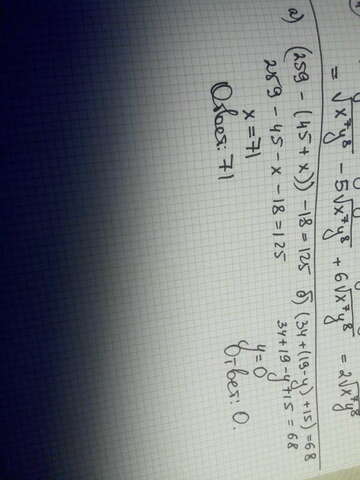 = √x⁷y⁸ - 5√x⁷y⁸ + 6√x⁷y⁸ = 2√x⁷y⁸
а) (259 - (45 + x)) - 18 = 125
259 - 45 - x - 18 = 125
x = 71
Ответ: 71
б) (34 + (19 - y) + 15) = 68
34 + 19 - y + 15 = 68
y = 0
Ответ: 0.